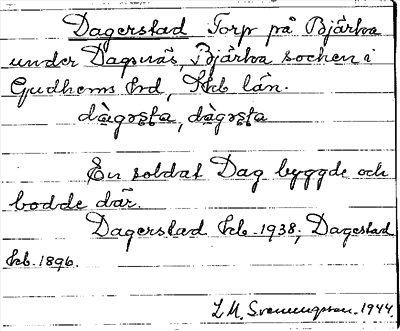 Dagerstad Torp på Bjärka
under Dagsnäs, Bjärka socken i
Gudhems hd, Skb län.
dàgəsta, dàgəsta
En soldat Dag byggde och
bodde där.
Dagerstad Jkb. 1938; Dagestad
Jkb. 1896.
L. M. Svenungsson. 1944.